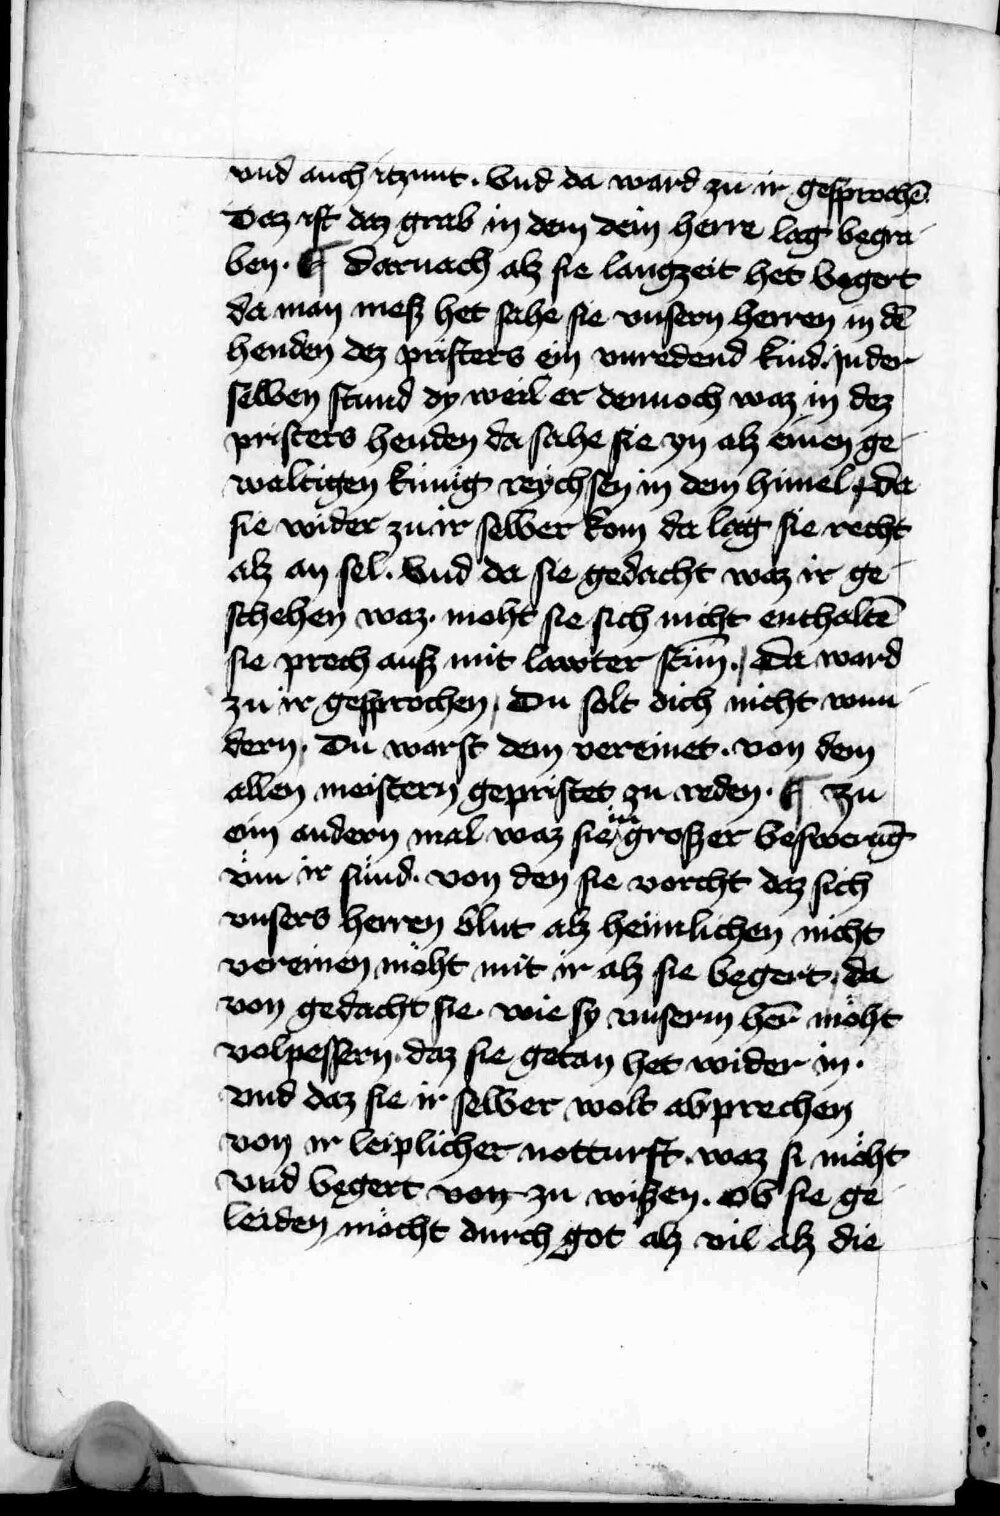 vnd auch itzunt. Vnd da ward zu ir gesprochē
Daz ist daz grab in dem dein herre lag begra
ben. ¶ Darnach alz sie langzeit het begert
da man mesz het sahe sie vnsern herren in dē
henden dez pristers ein vnredend kind. In der
selben stund dy weil er dennoch waz in dez
pristers henden da sahe sie yn alz einen ge
waltigen künig reychsen in dem himel, da
sie wider zu ir selber kom da lag sie recht
alz an sel. Vnd da sie gedacht waz ir ge
schehen waz. moht sie sich nicht enthaltē
sie prach ausz mit lawter stim̄. Da ward
zu ir gesprochen, Du solt dich nicht wun
dern, Du warst dem vereinet. von dem
allen meistern gepristet zu reden. ¶ Zu
eim andern mal waz sie in groszer beswerūg
vm ir sünd. von den sie vorcht daz sich
vnsers herren blut alz heimlichen nicht
vereinen möht mit ir alz sie begert, da
von gedacht sie. wie sy vnserm her̄ möht
volpessern. daz sie getan het wider in.
vnd daz sie ir selber wolt abprechen
von ir leiplicher notturft. waz si möht
vnd begert von zu wiszen. Ob sie ge
leiden möcht durch got alz vil alz die